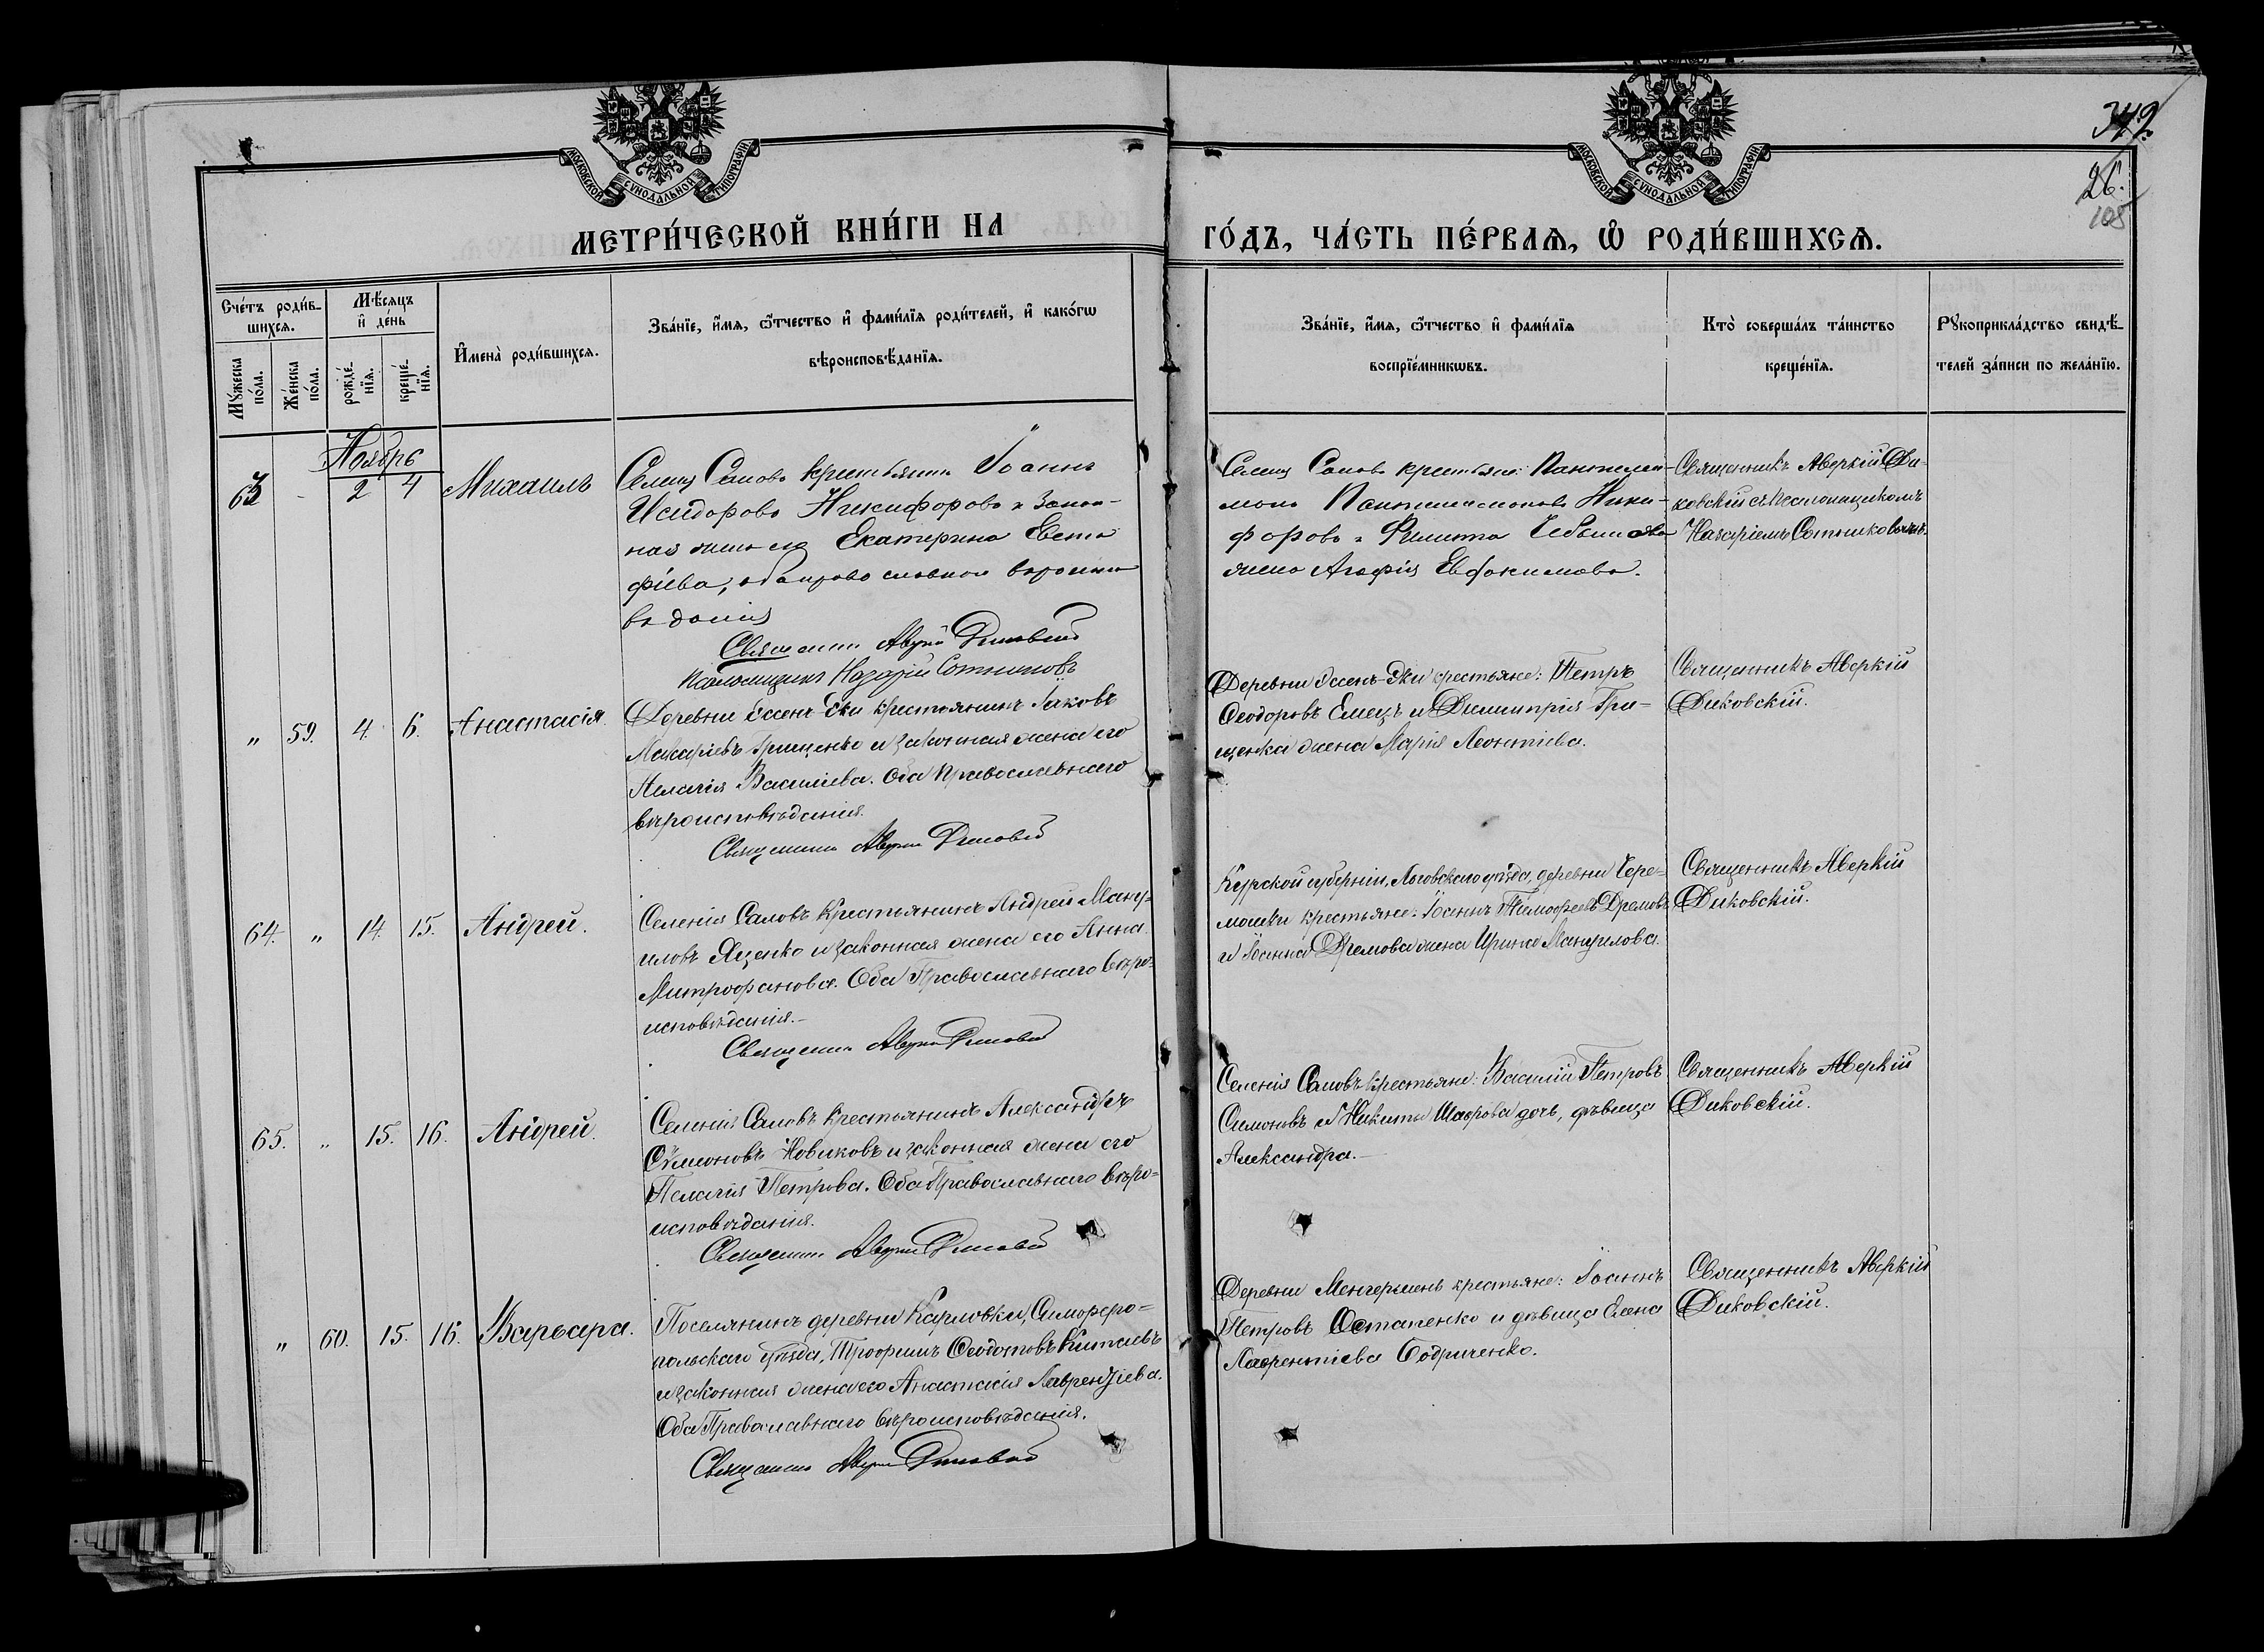 МОСКОВСКОЙ СѴНОДАЛЬНОЙ ТИПОГРАФІИ
МОСКОВСКОЙ СѴНОДАЛЬНОЙ ТИПОГРАФІИ
349.
26.
108
МЕТРИ́ЧЕСКОЙ КНИ́ГИ НА ГО́ДЪ, ЧА́СТЬ ПЕ́РВАѦ, Ѡ҆ РОДИ́ВШИХСѦ.
Сче́тъ роди́в-
шихсѧ.
Мꙋ́жеска
по́ла.
Же́нска
по́ла.
Мѣ́сѧцъ
и҆ де́нь
рожде́-
нїѧ.
креще́-
нїѧ.
И҆мена̀ роди́вшихсѧ.
Зва́нїе, и҆́мѧ, ѻ҆́тчество и҆ фами́лїѧ роди́телей, и҆ како́гѡ
вѣроисповѣ́данїѧ.
Зва́нїе, и҆́мѧ, ѻ҆́тчество и҆ фами́лїѧ
воспрїе́мникѡвъ.
Кто̀ соверша́лъ та́инство
креще́нїѧ.
Рꙋкоприкла́дство свидѣ́-
телей за́писи по жела́нїю.
Ноябрь
63 - 2 4 Михаилъ
Іоаннъ
Исидоровъ Никифоровъ и закон-
ная жена его Екатерина Евста
фіева, оба православнаго вѣроиспо
вѣданія
Священникъ Аверкій Диковскій
Псаломщикъ Назарій Сотниковъ
крестьяне: Пантелей-
монъ Пантелеимоновъ Ники-
форовъ и Филиппа
жена Агафія Евфокимова.
Священникъ Аверкій Ди-
ковскій съ псаломщикомъ
Назаріемъ Сотниковымъ.
" 59. 4. 6. Анастасія.
Деревни Эссенъ-Эки крестьянинъ Іаковъ
Макаріевъ Грищенко и законная жена его
Пелагія Василіева. Оба Православнаго
вѣроисповѣданія.
Священникъ Аверкій Диковскій
Деревни Эссенъ-Эки крестьяне: Петръ
Ѳеодоровъ Емецъ и Димитрія Гри-
щенка жена Марія Леонтіева.
Священникъ Аверкій
Диковскій.
64. " 14. 15. Андрей.
Селенія Саловъ крестьянинъ Андрей Ману-
иловъ Яценко и законная жена его Анна
Митрофанова. Оба Православнаго вѣро-
исповѣданія.-
Священникъ Аверкій Диковскій
Курской губерніи, Льговскаго уѣзда, деревни Чере-
мошки крестьяне: Іоаннъ Тимоѳеевъ Дремовъ
и Іоанна Дремова жена Ирина Мануилова.
Священникъ Аверкій
Диковскій.
65. " 15. 16. Андрей.
Селенія Саловъ крестьянинъ Александръ
Сѵмеоновъ Новиковъ и законная жена его
Пелагія Петрова. Оба Православнаго вѣро-
исповѣданія.
Священникъ Аверкій Диковскій
Селенія Саловъ крестьяне: Василій Петровъ
Симоновъ и Никиты Шаврова дочь, дѣвица
Александра.-
Священникъ Аверкій
Диковскій.
" 60. 15. 16. Варвара.
Поселянинъ деревни Карловки, Симферо-
польскаго уѣзда, Трофимъ Ѳеодотовъ Китаевъ
и законная жена его Анастасія Лаврентіева.
Оба Православнаго вѣроисповѣданія.
Священникъ Аверкій Диковскій
Деревни Менгерменъ крестьяне: Іоаннъ
Петровъ Остапенко и дѣвица Елена
Лаврентіева Бодриченко.
Священникъ Аверкій
Диковскій.